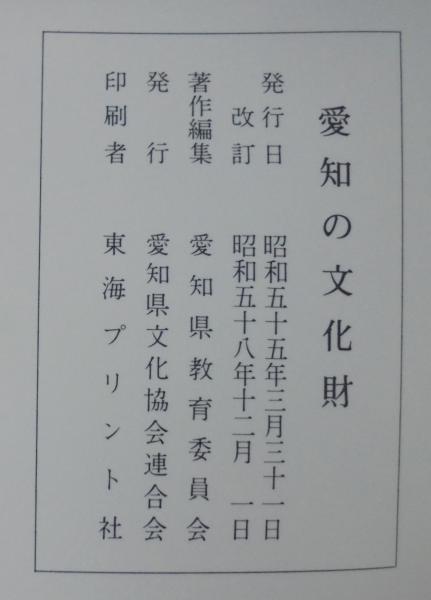 愛知の文化財
発行日 昭和五十五年三月三十一日
改訂 昭和五十八年十二月 一日
著作編集 愛知県教育委員会
発行 愛知県文化協会連合会
印刷者 東海プリント社